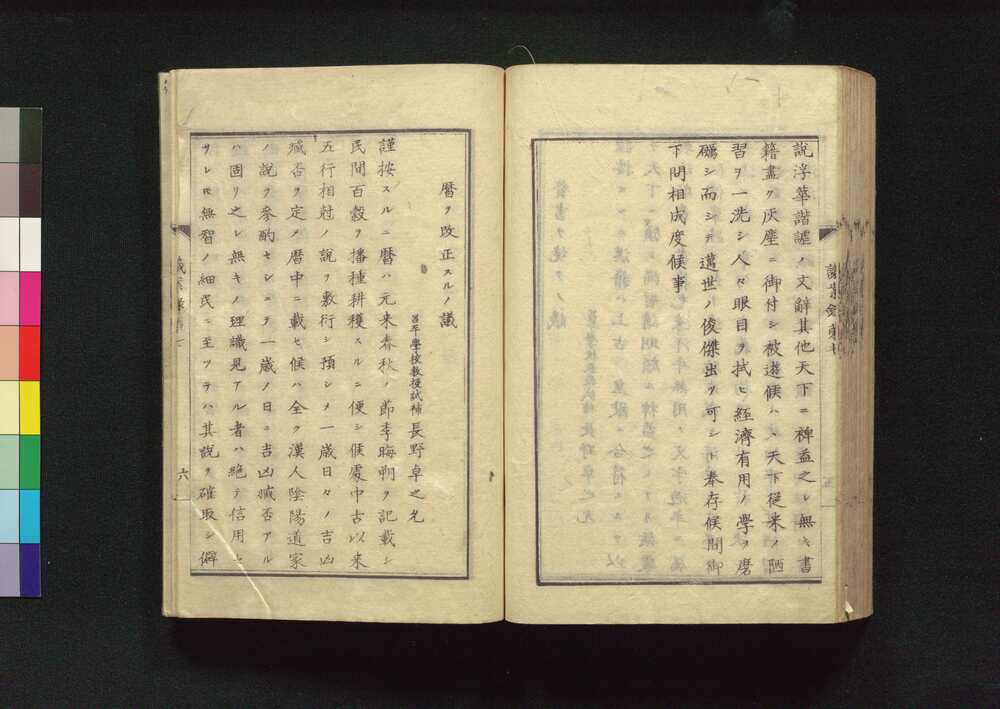 説浮華諧謔ノ文辭其他天下ニ裨益之レ無キ書
籍盡ク灰塵ニ御付シ被遊候ハヽ天下從来ノ陋
習ヲ一洗シ人々眼目ヲ拭ヒ經濟有用ノ學ヲ磨
礪シ而シテ邁世ノ俊傑出ヅ可シト奉存候間御
下問相成度候事
暦ヲ改正スルノ議
昌平學校教授試補 長野卓之允
謹按スルニ暦ハ元来春秋ノ節季晦朔ヲ記載シ
民間百穀ヲ播種耕穫スルニ便シ候處中古以来
五行相尅ノ說ヲ敷衍シ預シメ一歳日々ノ吉凶
臧否ヲ定メ暦中ニ載セ候ハ全ク漢人陰陽道家
ノ說ヲ參酌セシニテ一歳ノ日ニ吉凶臧否アル
ハ固リ之レ無キノ理識見アル者ハ絶テ信用
サレ𪜈無智ノ細民ニ至ツテハ其說ヲ確取シ僻
六